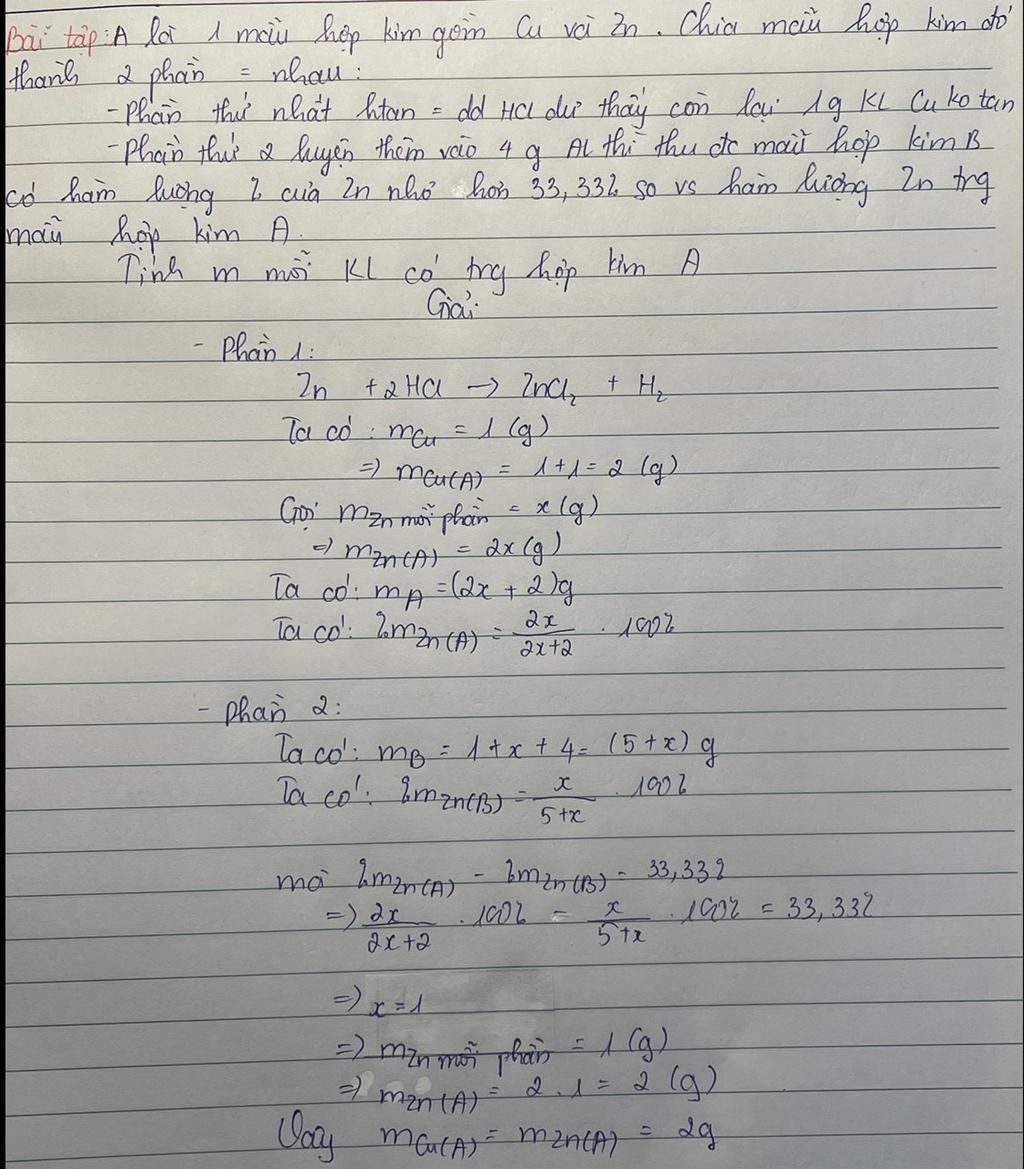 Bài tập: A là 1 mẫu hợp kim gồm Cu và Zn. Chia mẫu hợp kim đó
thành 2 phần = nhau:
- Phần thứ nhất htan = dd HCl dư thấy còn lại 1g KL Cu ko tan
- Phần thứ 2 luyện thêm vào 4 g Al thì thu đc mẫu hợp kim B
có hàm lượng % của Zn nhỏ hơn 33,33% so vs hàm lượng Zn trg
mẫu hợp kim A.
Tính m mỗi KL có trg hợp kim A
Giải:
- Phần 1:
Zn + 2HCl → ZnCl₂ + H₂
Ta có: mCu = 1 (g)
=> mCu(A) = 1+1 = 2 (g)
Gọi mZn mỗi phần = x (g)
=> mZn(A) = 2x (g)
Ta có: mA = (2x + 2)g
Ta có: %mZn(A) = 2x/2x+2 . 100%
- Phần 2:
Ta có: mB = 1+x+4 = (5+x) g
Ta có: %mZn(B) = x/5+x . 100%
mà %mZn(A) - %mZn(B) = 33,33%
=> 2x/2x+2 . 100% - x/5+x . 100% = 33,33%
=> x = 1
=> mZn mỗi phần = 1 (g)
=> mZn(A) = 2 . 1 = 2 (g)
Vậy mCu(A) = mZn(A) = 2g